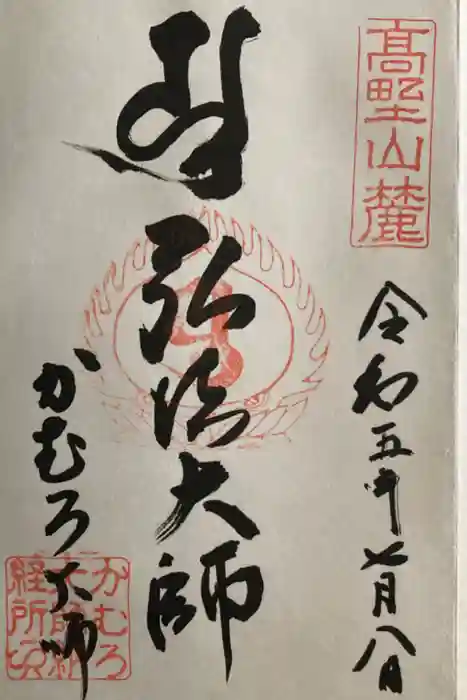 高野山麓
令和五年七月八日
弘法大師
かむろ大師
かむろ
大師納
経所印